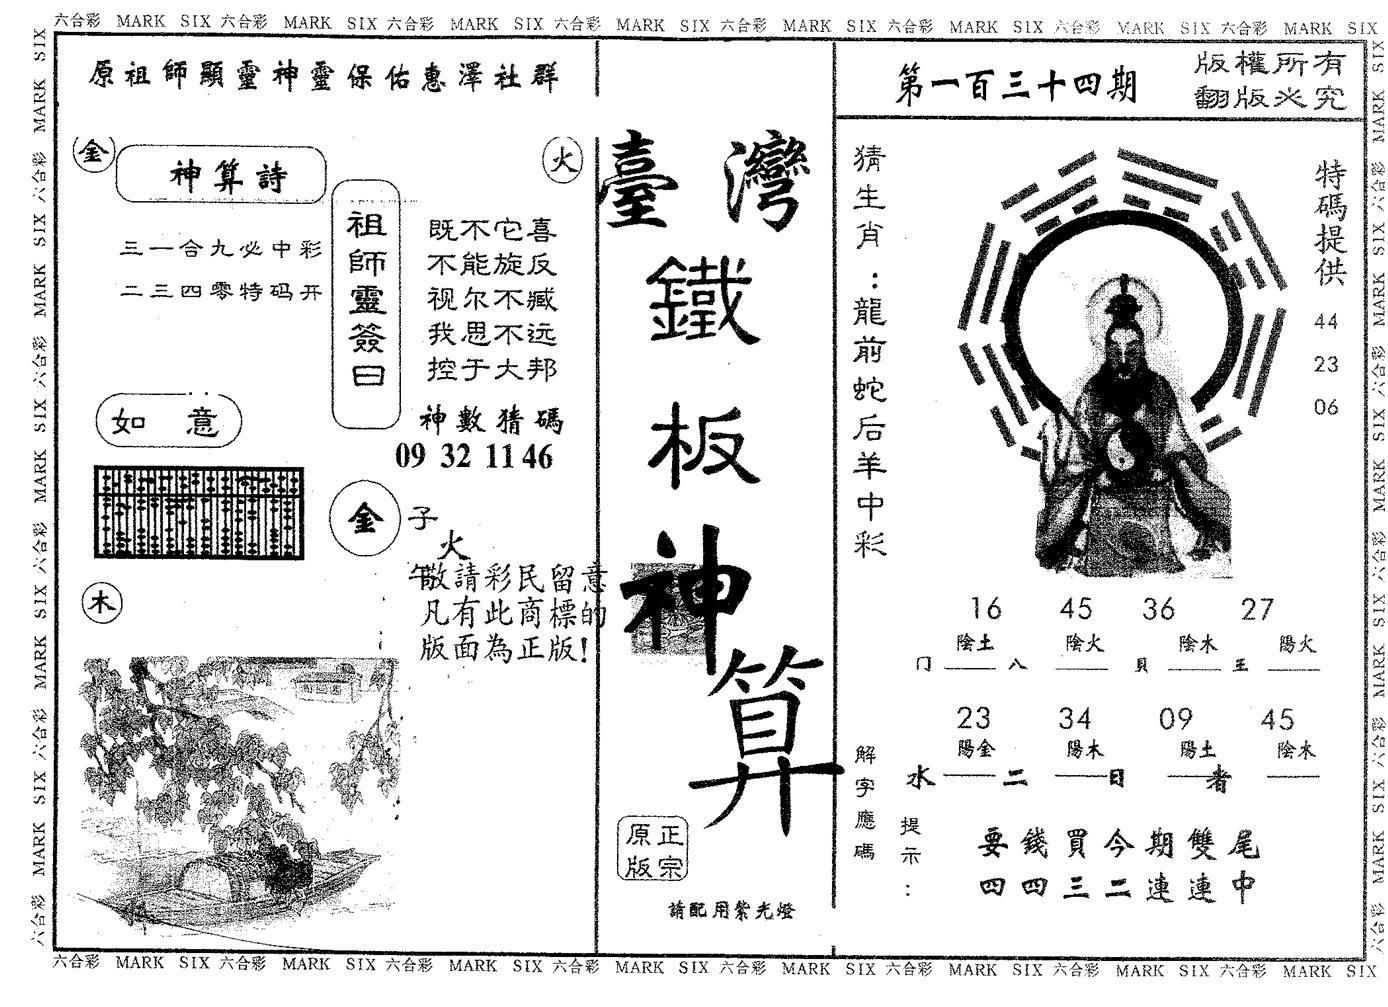 六合彩 MARK SIX 六合彩 MARK SIX 六合彩 MARK SIX 六合彩 MARK SIX 六合彩 MARK SIX 六合彩 MARK SIX 六合彩 MARK SIX 六合彩 MARK SIX
原祖師顯靈神靈保佑惠澤社群
金
神算詩
火
三一合九必中彩
二三四零特码开
祖師靈簽曰
既不它喜
不能旋反
视尔不臧
我思不远
控于大邦
神數猜碼
09 32 11 46
如意
金
子
火
午
木
敬請彩民留意
凡有此商標的
版面為正版!
臺灣
鐵
板
神
算
正宗
原版
請配用紫光燈
第一百三十四期
版權所有
翻版必究
猜生肖:龍前蛇后羊中彩
特碼提供
44
23
06
16 45 36 27
陰土 陰火 陰木 陽火
门 八 貝 王
23 34 09 45
陽金 陽木 陽土 陰水
水 二 日 者
解字應碼
提示:
要錢買今期雙尾
四四三二連連中
六合彩 MARK SIX 六合彩 MARK SIX 六合彩 MARK SIX 六合彩 MARK SIX 六合彩 MARK SIX 六合彩 MARK SIX 六合彩 MARK SIX 六合彩 MARK SIX
六合彩 MARK SIX 六合彩 MARK SIX 六合彩 MARK SIX 六合彩 MARK SIX 六合彩 MARK SIX
六合彩 MARK SIX 六合彩 MARK SIX 六合彩 MARK SIX 六合彩 MARK SIX 六合彩 MARK SIX